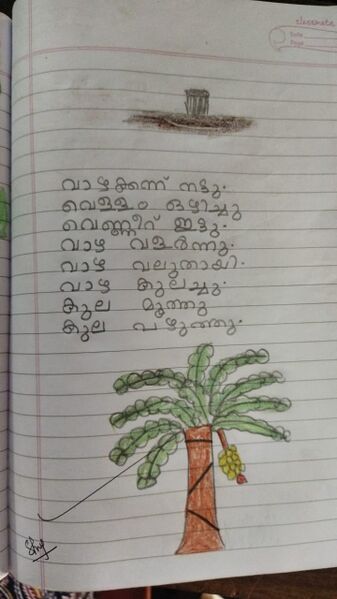 classmate
Date
Page
വാഴക്കന്ന് നട്ടു.
വെള്ളം ഒഴിച്ചു
വെണ്ണീറ് ഇട്ടു.
വാഴ വളർന്നു.
വാഴ വലുതായി.
വാഴ കുലച്ചു.
കുല മൂത്തു
കുല പഴുത്തു.